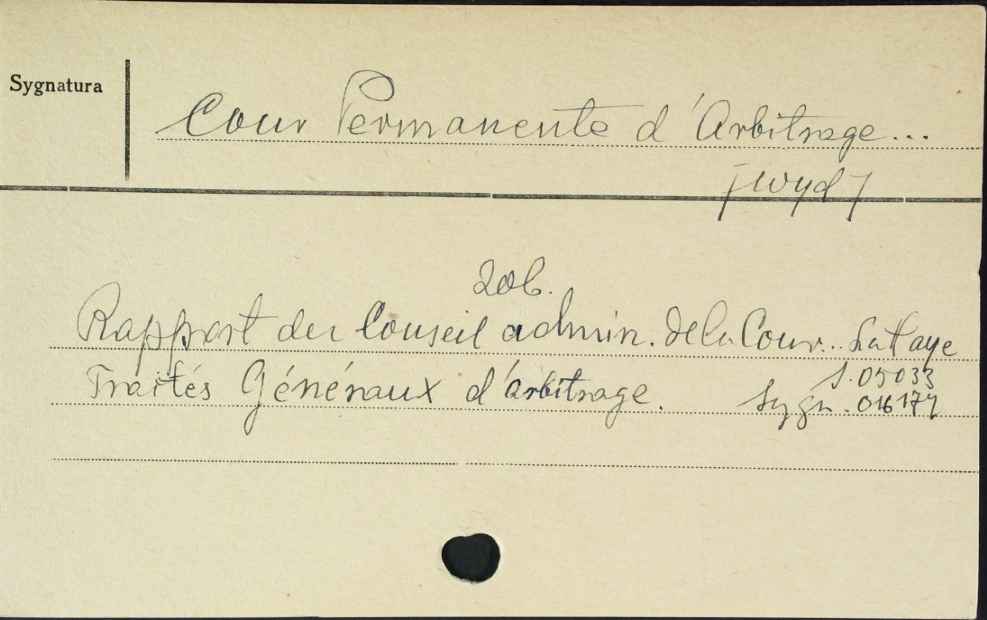 Sygnatura
Cour Permanente d'Arbitrage...
/wyd/
zob.
Rapport du Conseil admin. de la Cour.. La Haye
Traités Généraux d'arbitrage.
S.05033
Sygn. 016174